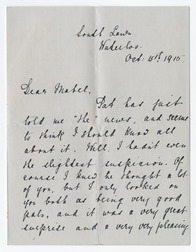 South Lawn
Waterloo.
Oct. 15th 1915.
Dear Mabel,
Pat has just
told me "the" news, and seems
to think I should know all
about it. Well, I hadn't even
the slightest suspicion. Of
course I knew he thought a lot
of you, but I only looked on
you both as being very good
pals, and it was a very great
surprise and a very very pleasing